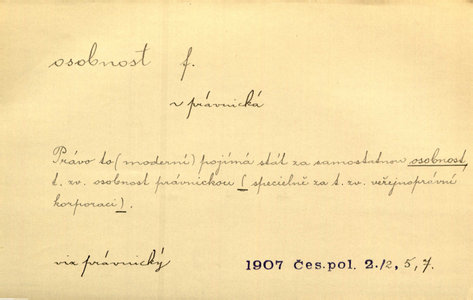 osobnost f.
v právnická
Právo to (moderní) pojímá stát za samostatnou osobnost,
t. zv. osobnost právnickou ( specielně za t. zv. veřejnoprávní
korporaci ) .
viz právnický 1907 Čes.pol. 2./2, 5, 7.